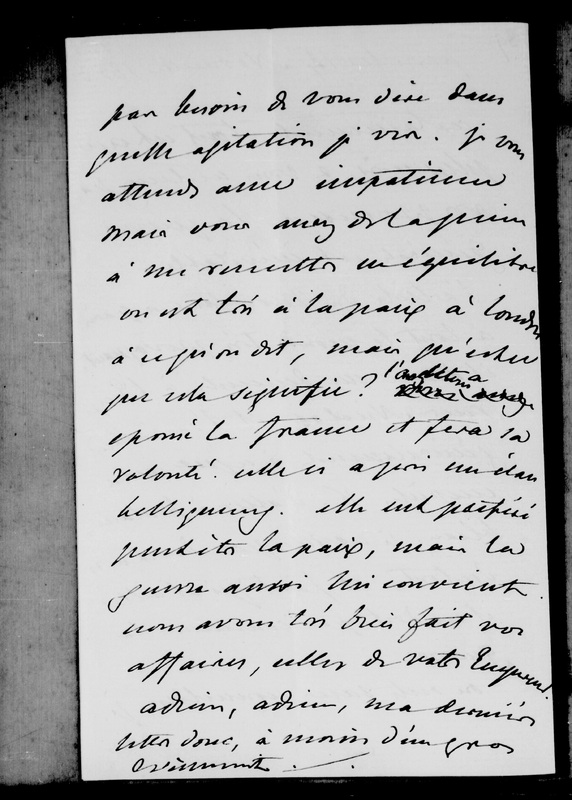 par besoin de vous dire dans
quelle agitation je vis. je vous
attends avec impatience
mais vous aurez de la peine
à me remettre en équilibre
on est très à la paix à Londres
à ce qu'on dit, mais qu'est ce
que cela signifie ? l'angleterre a
épousé la france et fera sa
volonté. celle ci a pris un élan
belliqueux. elle eut préféré
peut être la paix, mais la
guerre aussi lui convient.
nous avons très bien fait vos
affaires, celles de votre Empereur.
adieu, adieu, ma dernière
lettre donc, à moins d'un gros
évènement.